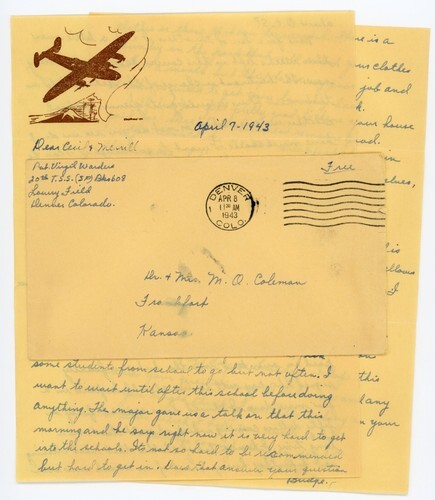 April 7-1943
Dear Cecil & Merrill
Pvt. Virgil
20th T.S.S. (SP) Bks 608
Lowry Field
Denver Colorado.
Free
DENVER
APR 8
11 30 AM
1943
COLO.
1
Mr. & Mrs. M. O. Coleman
Frankfort
Kansas
e is a
clothes
job and
k.
house
in
is
I
this
any
your
some students from school to go but not often. I
want to wait until after this school before doing
anything. The major gave us a talk on that this
morning and he says right now it is very hard to get
into the schools. Its not so hard to be recommended
but hard to get in. Does that answer your question